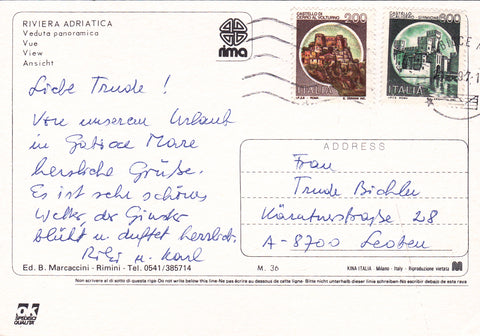 RIVIERA ADRIATICA
Veduta panoramica
Vue
View
Ansicht
rima
CASTELLO DI
CERRO AL VOLTURNO
200
ITALIA
I.P.Z.S. - ROMA
CASTELLO
300
ITALIA
I.P.Z.S. - ROMA
Liebe Trude !
Von unserem Urlaub
in Gabicce Mare
herzliche Grüße.
Es ist sehr schönes
Wetter der Ginster
blüht u. duftet herrlich.
Rizi u. Karl
ADDRESS
Frau
Trude Bichler
Kärntnerstraße 28
A-8700 Leoben
Ed. B. Marcaccini - Rimini - Tel. 0541/385714
M. 36
KINA ITALIA - Milano - Italy - Riproduzione vietata
Non scrivere al di sotto di questa riga-Do not write below this line-Ne pas écrire au dessous de cette ligne- Bitte nicht unterhalb dieser linie schreiben-No escribir debajo de esta raya
ok
SPEDISCI
QUALITÀ